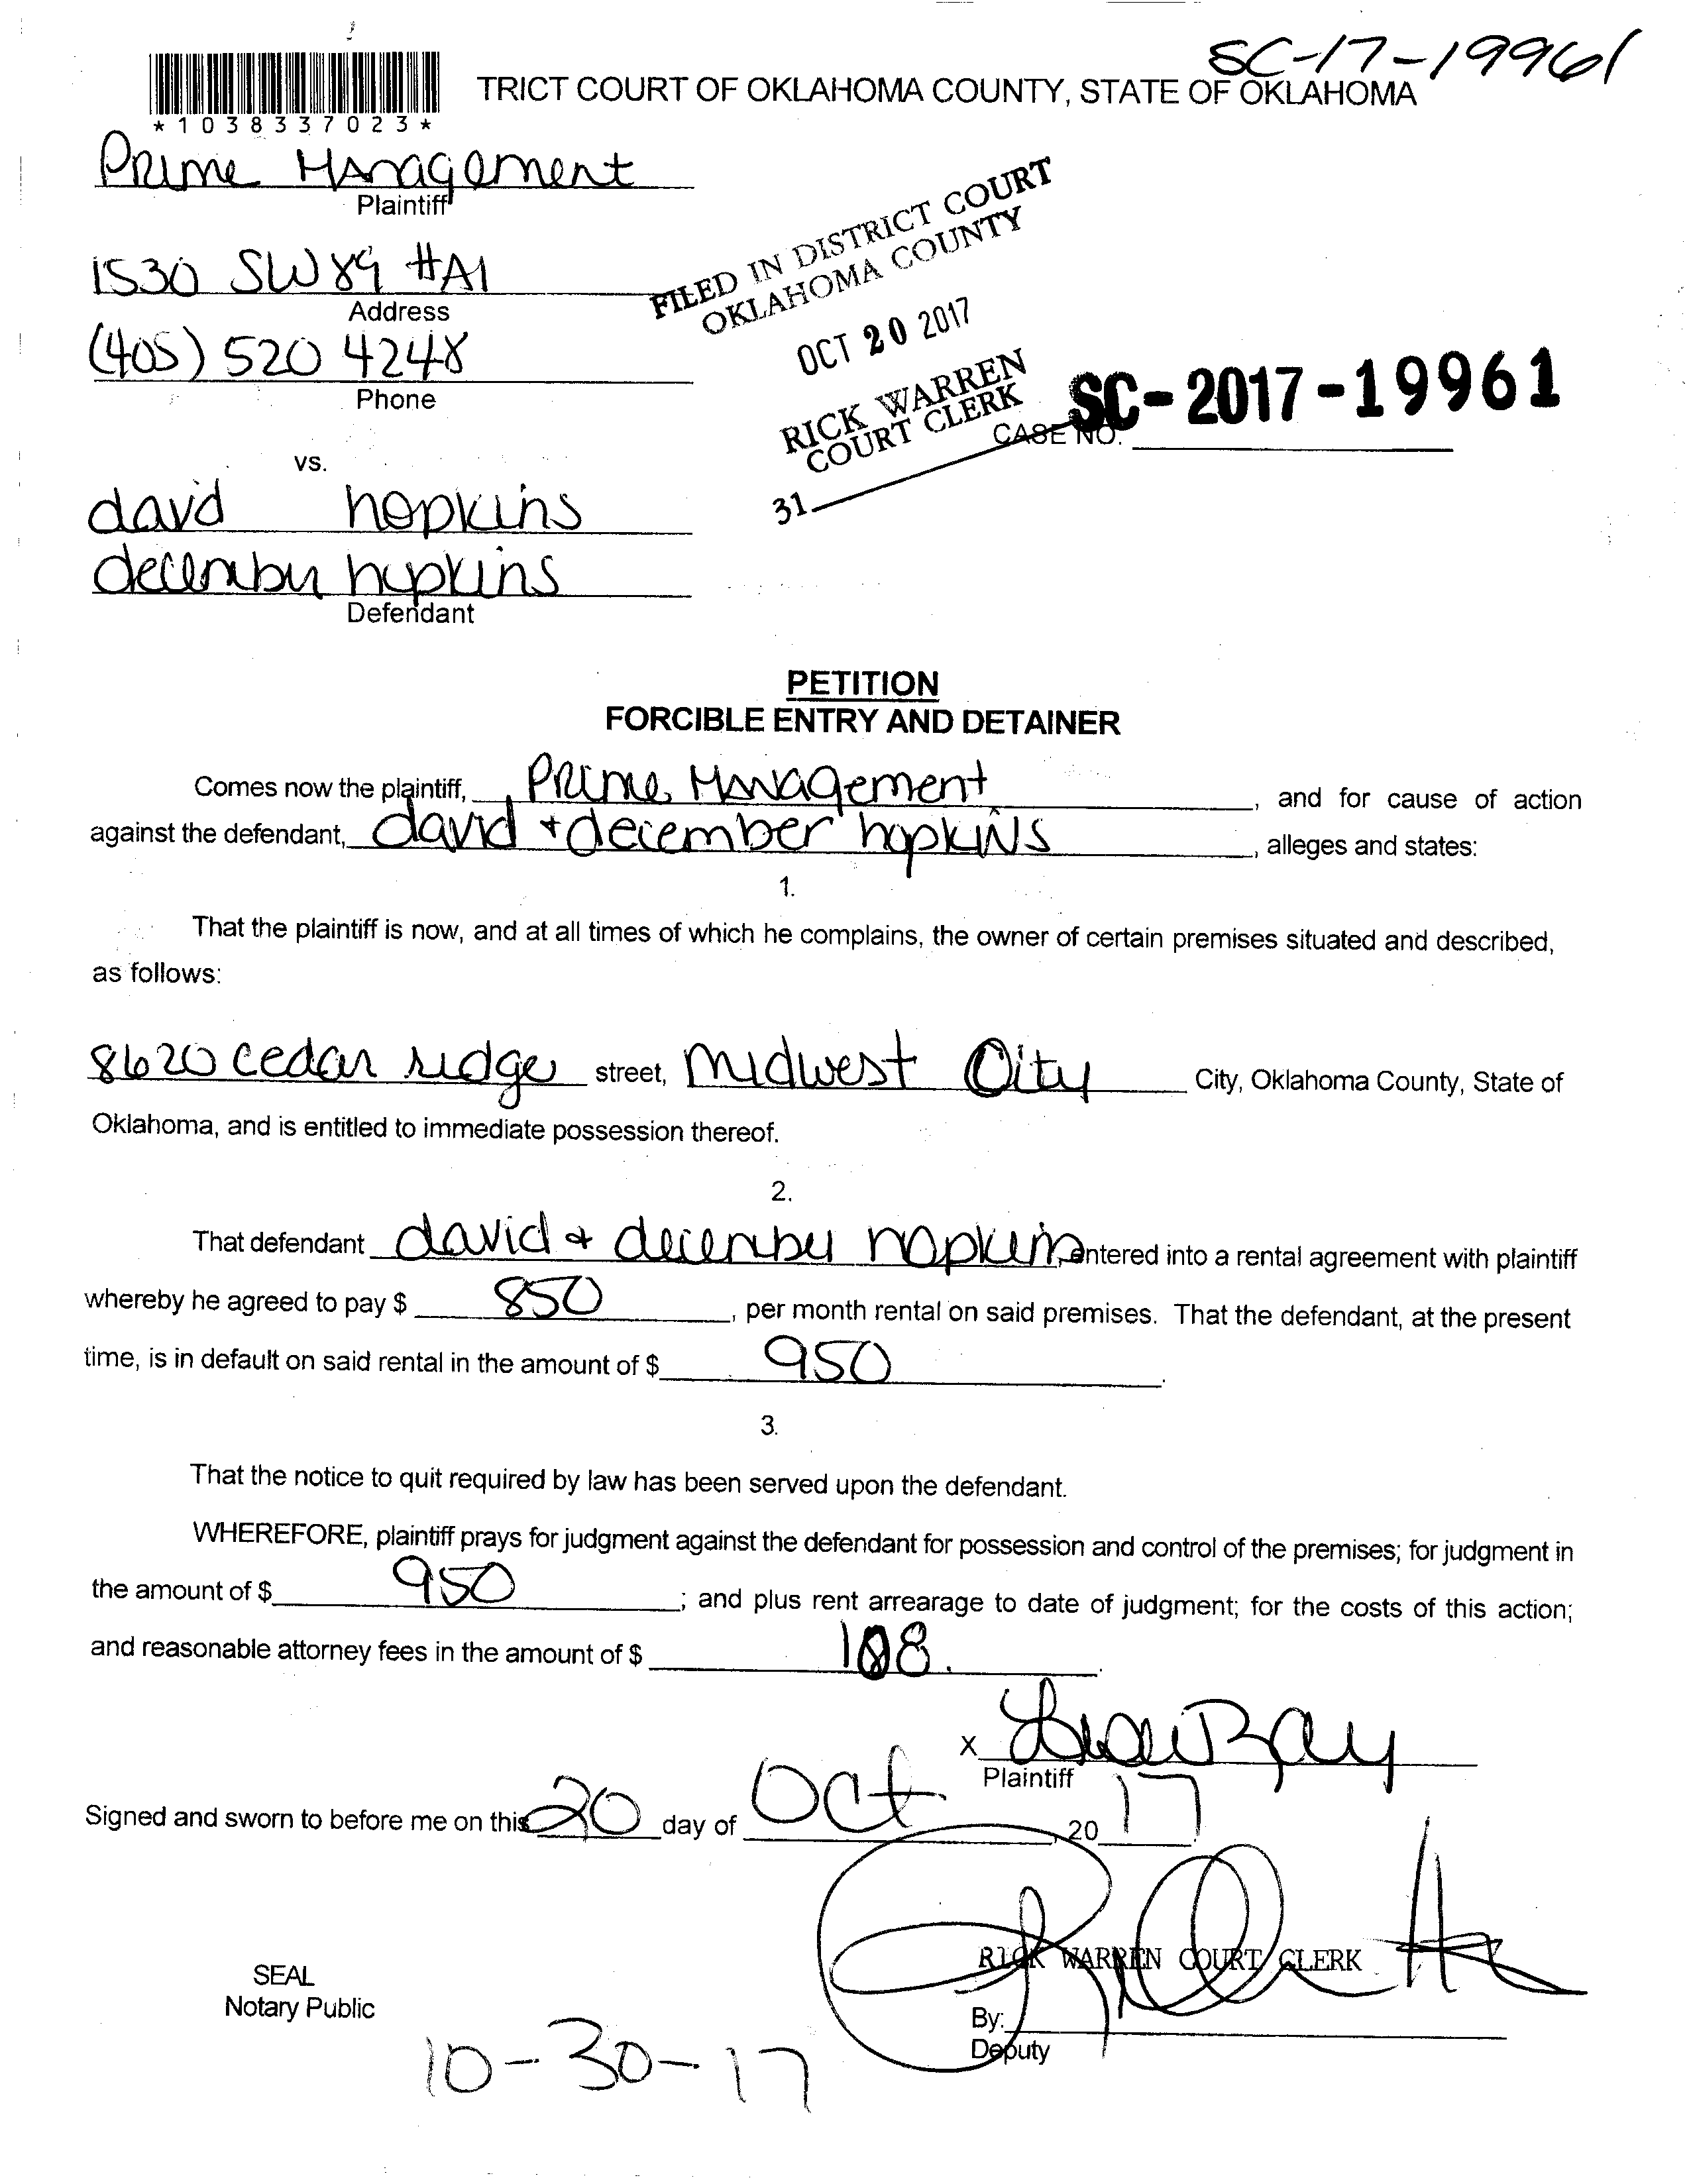 SC-17-19961
TRICT COURT OF OKLAHOMA COUNTY, STATE OF OKLAHOMA
*1038337023*
Prime Management
Plaintiff
1530 SW 89 #A1
Address
(405) 520 4248
Phone
FILED IN DISTRICT COURT
OKLAHOMA COUNTY
OCT 20 2017
RICK WARREN
COURT CLERK
31
SC-2017-19961
CASE NO.
vs.
david hopkins
december hopkins
Defendant
PETITION
FORCIBLE ENTRY AND DETAINER
Comes now the plaintiff, Prime Management, and for cause of action
against the defendant, david + december hopkins, alleges and states:
1.
That the plaintiff is now, and at all times of which he complains, the owner of certain premises situated and described,
as follows:
8620 cedar ridge street, Midwest City City, Oklahoma County, State of
Oklahoma, and is entitled to immediate possession thereof.
2.
That defendant david + december hopkins entered into a rental agreement with plaintiff
whereby he agreed to pay $ 850, per month rental on said premises. That the defendant, at the present
time, is in default on said rental in the amount of $ 950.
3.
That the notice to quit required by law has been served upon the defendant.
WHEREFORE, plaintiff prays for judgment against the defendant for possession and control of the premises; for judgment in
the amount of $ 950; and plus rent arrearage to date of judgment; for the costs of this action;
and reasonable attorney fees in the amount of $
X
Plaintiff
Signed and sworn to before me on this 20 day of Oct, 2017
RICK WARREN COURT CLERK
SEAL
Notary Public
By:
Deputy
10-30-17